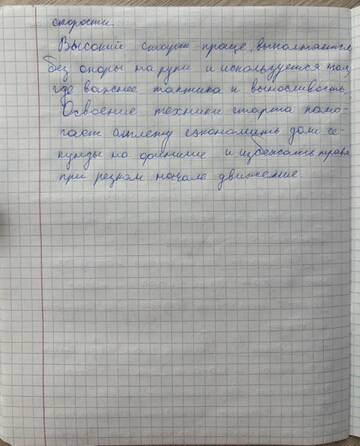 скорости.
Высокий старт проще, выполняется
без опоры на руки и используется там,
где важнее тактика и выносливость.
Освоение техники старта помо-
гает атлету сэкономить доли се-
кунды на финише и избежать травм
при резком начале движение.